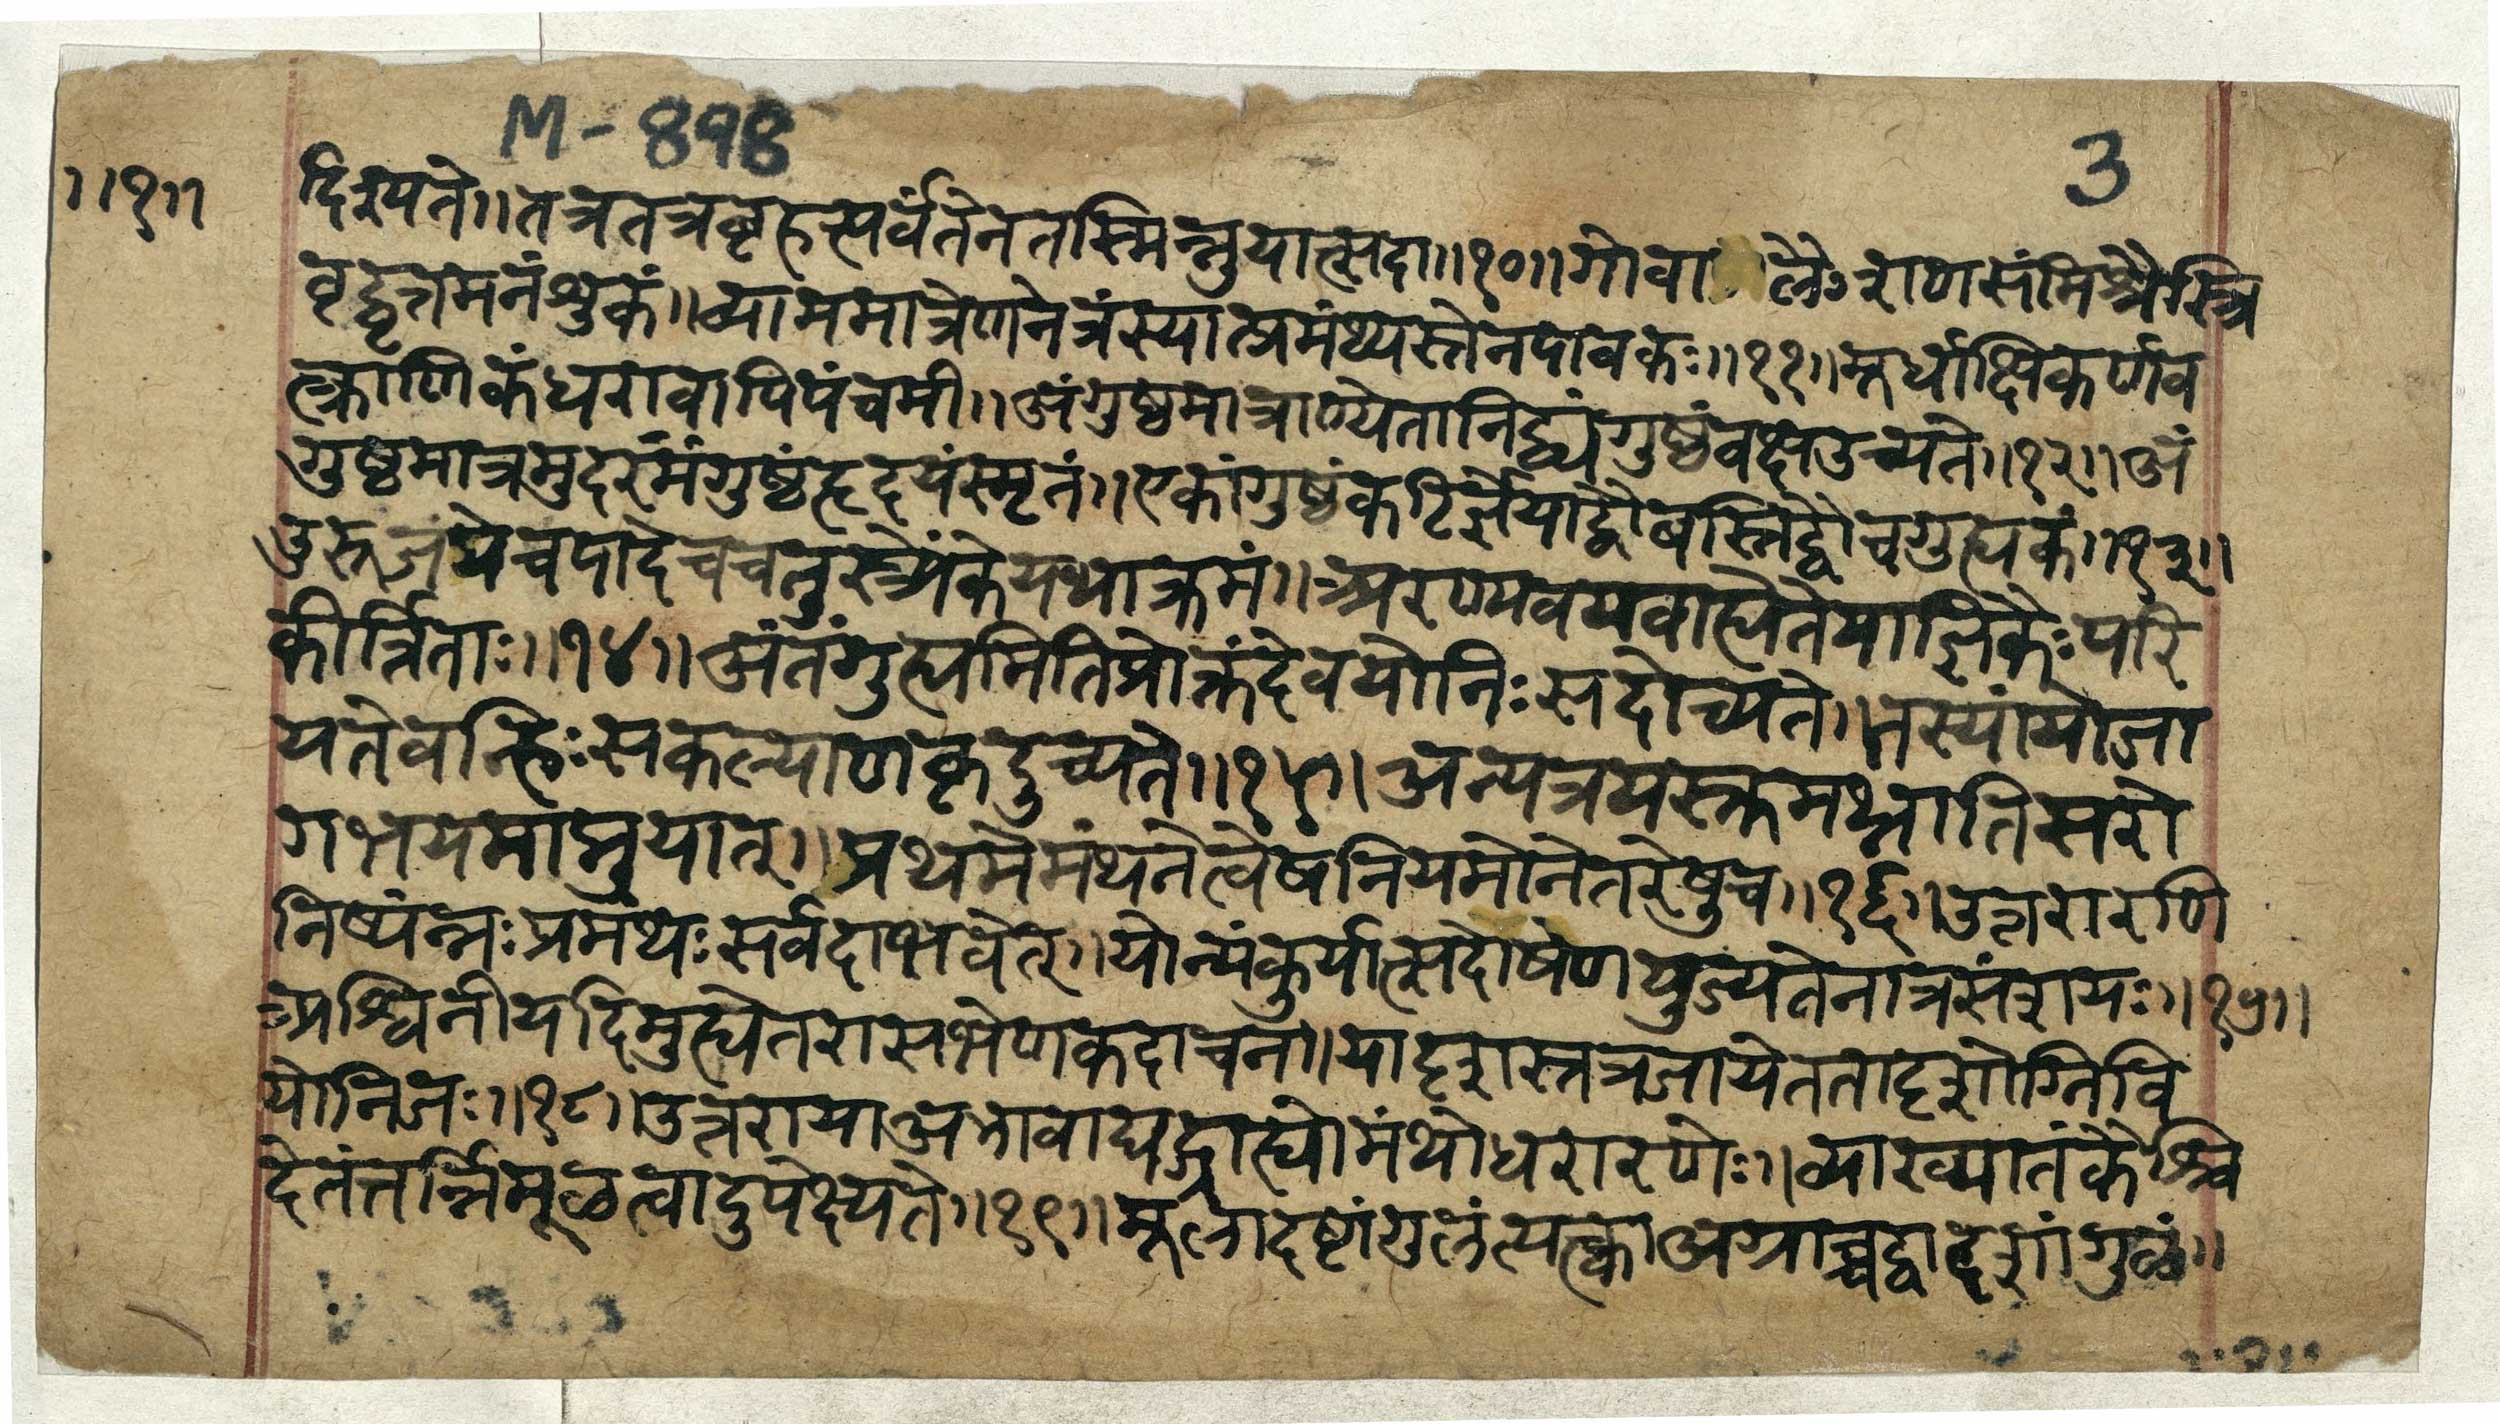 M - 898
3
॥१॥
दिश्यते॥तत्रतत्रबृहत्पर्वतेनतस्मिन्नुयात्सदा॥१०॥गोवालैःशणसंमिश्रैस्त्रि
वृद्वृत्तमनंशुकं॥व्याममात्रेणनेत्रंस्यात्प्रमंथ्यस्तेनपावकः॥११॥मूर्धाक्षिकर्णव
त्क्राणिकंधरावापिपंचमी॥अंगुष्ठमात्राण्येतानिद्व्यंगुष्ठंवक्षउच्यते॥१२॥अं
गुष्ठमात्रमुदरंमंगुष्ठंहृदयंस्मृतं॥एकांगुष्ठंकटिर्ज्ञेयाद्वौबस्तिर्द्वौचगुह्यकं॥१३॥
उरुजंघेचपादेचचतुस्त्र्येकेयथाक्रमं॥अरण्यवयवाह्येतेयाज्ञिकैःपरि
कीर्त्तिताः॥१४॥अंतंगुह्यमितिप्रोक्तंदेवयोनिःसदोच्यते॥तस्यांयोजा
यतेवन्हिःसकल्याणकृदुच्यते॥१५॥अन्यत्रयस्क्तमथ्नातिसरो
गभयमाप्नुयात्॥प्रथमेमंथनेत्वेषनियमोनेतरेषुच॥१६॥उत्तरारणि
निष्पंन्नःप्रमंथःसर्वदाभवेत्॥योन्यंकुर्यात्सदोषेणयुज्यतेनात्रसंशयः॥१७॥
अश्विनीयदिमुह्येतरासभेणकदाचन॥यादृशस्तत्रजायेततादृशोग्निवि
योनिजः॥१८॥उत्तरायाअभावाद्यद्ग्राह्योमंथोधरारणेः॥व्याख्यातंकैश्चि
देतंत्तर्न्निमूळत्वादुपेक्ष्यते॥१९॥मूलादष्टांगुलंत्यत्क्काअग्राच्चद्वादशांगुळं॥